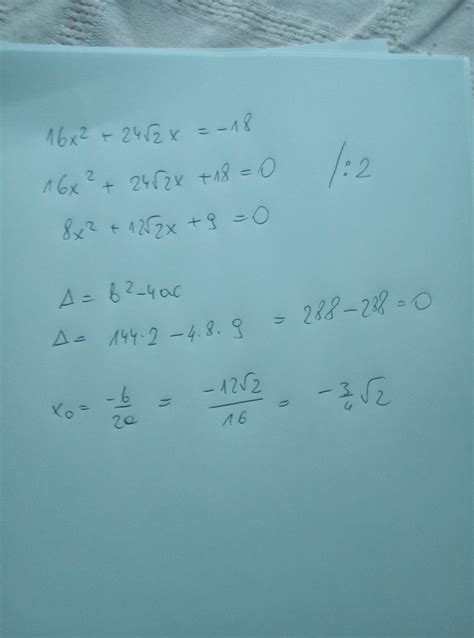 16x² + 24√2x = -18
16x² + 24√2x + 18 = 0 /:2
8x² + 12√2x + 9 = 0
Δ = b² - 4ac
Δ = 144·2 - 4·8·9 = 288 - 288 = 0
x₀ = -b/2a = -12√2/16 = -3/4√2